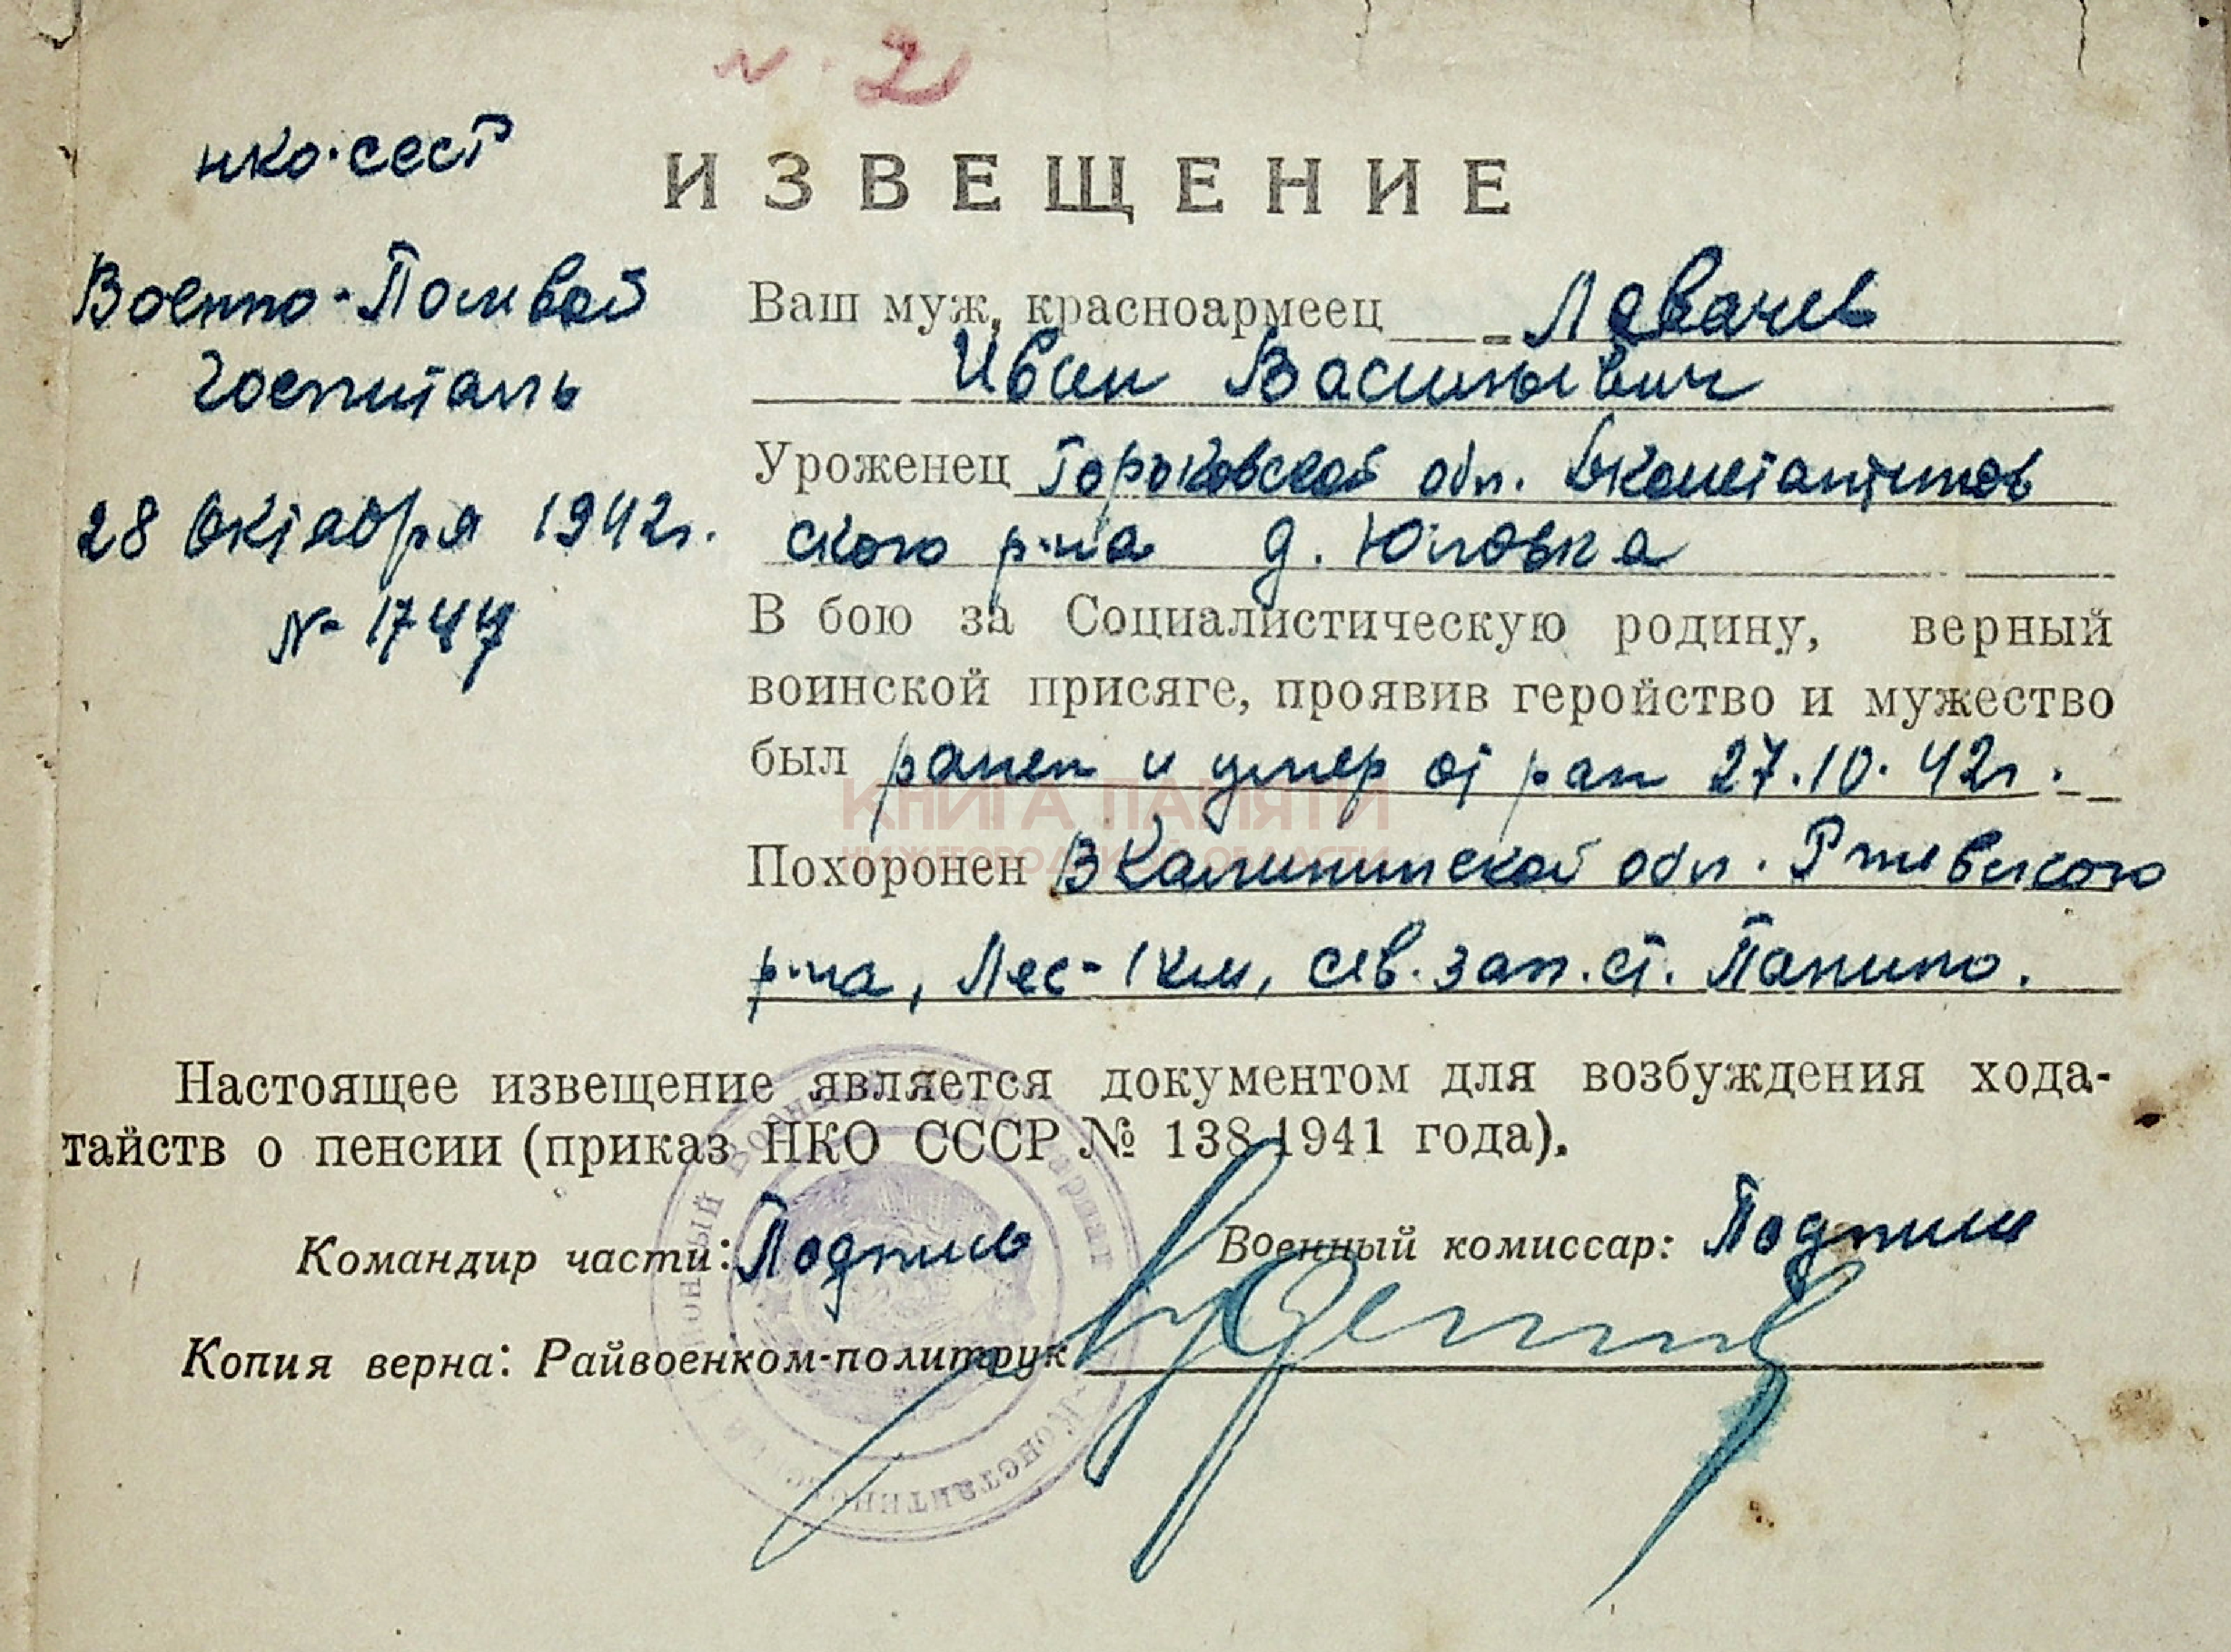 № 2
нко-сссР
ИЗВЕЩЕНИЕ
Военно-Полевой
госпиталь
28 октября 1942г.
Ваш муж, красноармеец Лавачев
Иван Васильевич
Уроженец Горьковской обл. Дконстантинов
ского р-на д. Юловка
В бою за Социалистическую родину, верный
воинской присяге, проявив геройство и мужество
был ранен и умер от ран 27.10.42г.
КНИГА ПАМЯТИ
НИЖЕГОРОДСКОЙ ОБЛАСТИ
Похоронен В Калининской обл. Ржевского
р-на, Лес-1км, сев. зап. ст. Панино.
Настоящее извещение является документом для возбуждения хода-
тайств о пенсии (приказ НКО СССР № 138 1941 года).
Командир части: Подпись
Военный комиссар: Подпись
Копия верна: Райвоенком-политрук